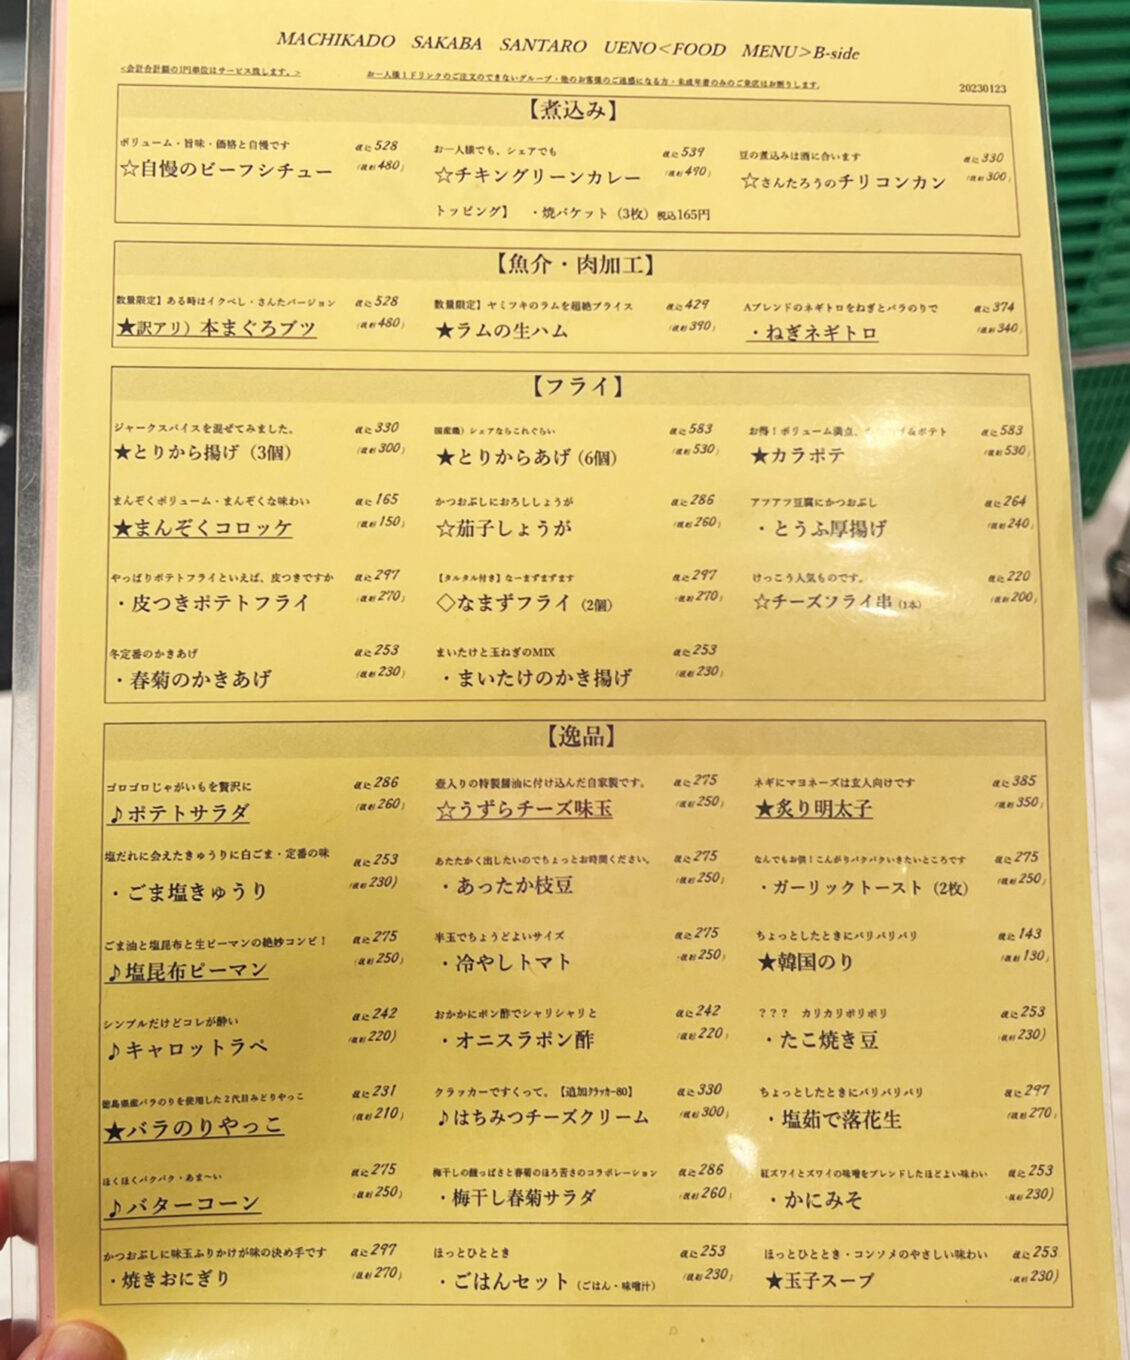 MACHIKADO SAKABA SANTARO UENO<FOOD MENU>B-side
<会計合計額の1円単位はサービス致します。>
お一人様1ドリンクのご注文のできないグループ・他のお客様のご迷惑になる方・未成年者のみのご来店はお断りします。
20230123
【煮込み】
ボリューム・旨味・価格と自慢です 税込528
☆自慢のビーフシチュー (税抜480)
お一人様でも、シェアでも 税込539
☆チキングリーンカレー (税抜490)
豆の煮込みは酒に合います 税込330
☆さんたろうのチリコンカン (税抜300)
トッピング】 ・焼バケット（3枚）税込165円
【魚介・肉加工】
数量限定】ある時はイクべし・さんたバージョン 税込528
★訳アリ）本まぐろブツ (税抜480)
数量限定】ヤミツキのラムを超絶プライス 税込429
★ラムの生ハム (税抜390)
Aブレンドのネギトロをねぎとバラのりで 税込374
・ねぎネギトロ (税抜340)
【フライ】
ジャークスパイスを混ぜてみました。 税込330
★とりから揚げ（3個） (税抜300)
国産鶏）シェアならこれぐらい 税込583
★とりからあげ（6個） (税抜530)
お得！ボリューム満点、 ポテト 税込583
★カラポテ (税抜530)
まんぞくボリューム・まんぞくな味わい 税込165
★まんぞくコロッケ (税抜150)
かつおぶしにおろししょうが 税込286
☆茄子しょうが (税抜260)
アツアツ豆腐にかつおぶし 税込264
・とうふ厚揚げ (税抜240)
やっぱりポテトフライといえば、皮つきですか 税込297
・皮つきポテトフライ (税抜270)
【タルタル付き】なーまずまずます 税込297
◇なまずフライ（2個） (税抜270)
けっこう人気ものです。 税込220
☆チーズフライ串（1本） (税抜200)
冬定番のかきあげ 税込253
・春菊のかきあげ (税抜230)
まいたけと玉ねぎのMIX 税込253
・まいたけのかき揚げ (税抜230)
【逸品】
ゴロゴロじゃがいもを贅沢に 税込286
♪ポテトサラダ (税抜260)
壺入りの特製醤油に付け込んだ自家製です。 税込275
☆うずらチーズ味玉 (税抜250)
ネギにマヨネーズは玄人向けです 税込385
★炙り明太子 (税抜350)
塩だれに会えたきゅうりに白ごま・定番の味 税込253
・ごま塩きゅうり (税抜230)
あたたかく出したいのでちょっとお時間ください。 税込275
・あったか枝豆 (税抜250)
なんでもお供！こんがりパクパクいきたいところです 税込275
・ガーリックトースト（2枚） (税抜250)
ごま油と塩昆布と生ピーマンの絶妙コンビ！ 税込275
♪塩昆布ピーマン (税抜250)
半玉でちょうどよいサイズ 税込275
・冷やしトマト (税抜250)
ちょっとしたときにパリパリパリ 税込143
★韓国のり (税抜130)
シンプルだけどコレが酔い 税込242
♪キャロットラペ (税抜220)
おかかにポン酢でシャリシャリと 税込242
・オニスラポン酢 (税抜220)
？？？ カリカリポリポリ 税込253
・たこ焼き豆 (税抜230)
徳島県産バラのりを使用した2代目みどりやっこ 税込231
★バラのりやっこ (税抜210)
クラッカーですくって。【追加クラッカー80】 税込330
♪はちみつチーズクリーム (税抜300)
ちょっとしたときにパリパリパリ 税込297
・塩茹で落花生 (税抜270)
ほくほくパクパク・あま〜い 税込275
♪バターコーン (税抜250)
梅干しの酸っぱさと春菊のほろ苦さのコラボレーション 税込286
・梅干し春菊サラダ (税抜260)
紅ズワイとズワイの味噌をブレンドしたほどよい味わい 税込253
・かにみそ (税抜230)
かつおぶしに味玉ふりかけが味の決め手です 税込297
・焼きおにぎり (税抜270)
ほっとひととき 税込253
・ごはんセット（ごはん・味噌汁） (税抜230)
ほっとひととき・コンソメのやさしい味わい 税込253
★玉子スープ (税抜230)